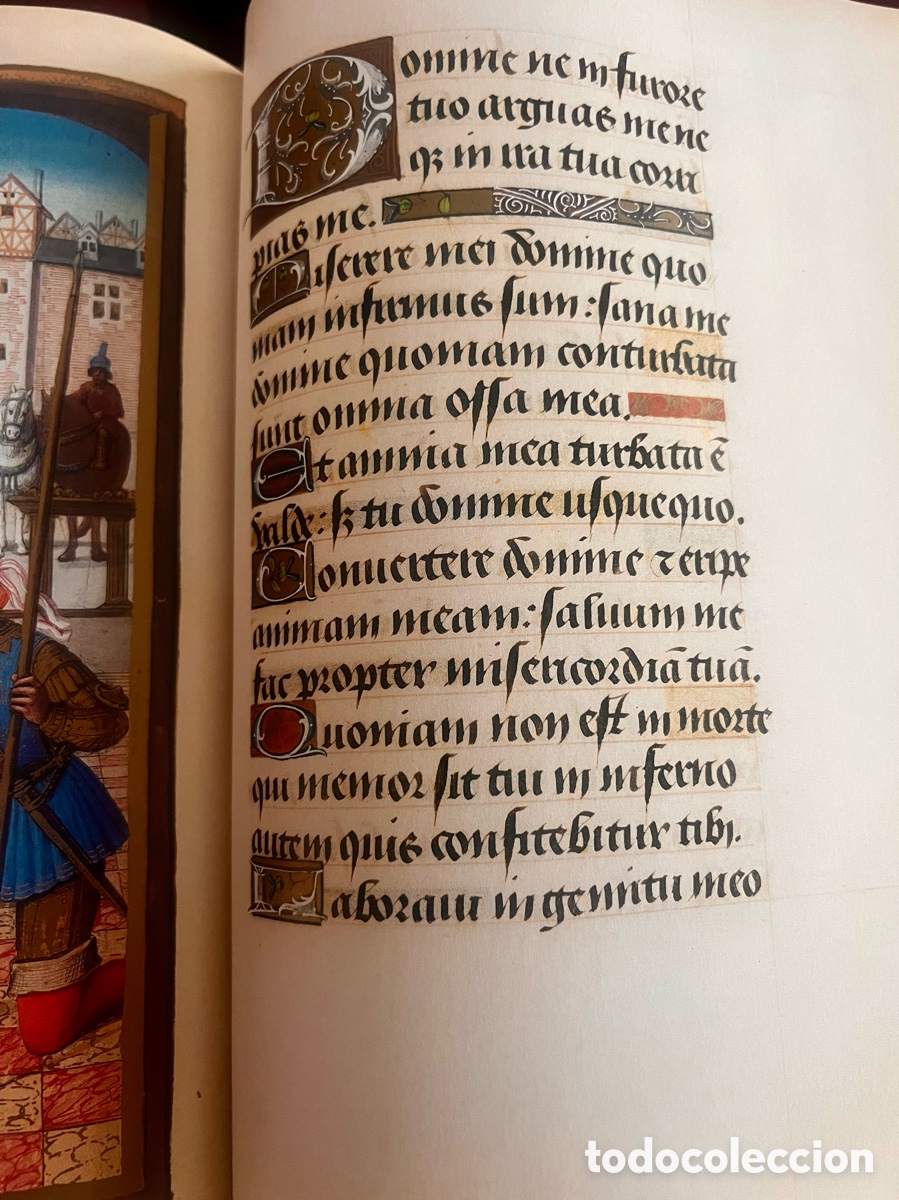 Domine ne in furore
tuo arguas me ne
qꝫ in ira tua corri
pias me.
Miserere mei domine quo
niam infirmus sum: sana me
domine quoniam conturbata
sunt omnia ossa mea.
Et anima mea turbata ē
valde: sꝫ tu domine usquequo.
Conuertere domine ⁊ eripe
animam meam: saluum me
fac propter misericordiā tuā.
Quoniam non est in morte
qui memor sit tui in inferno
autem quis confitebitur tibi.
Laboraui in gemitu meo
todocoleccion